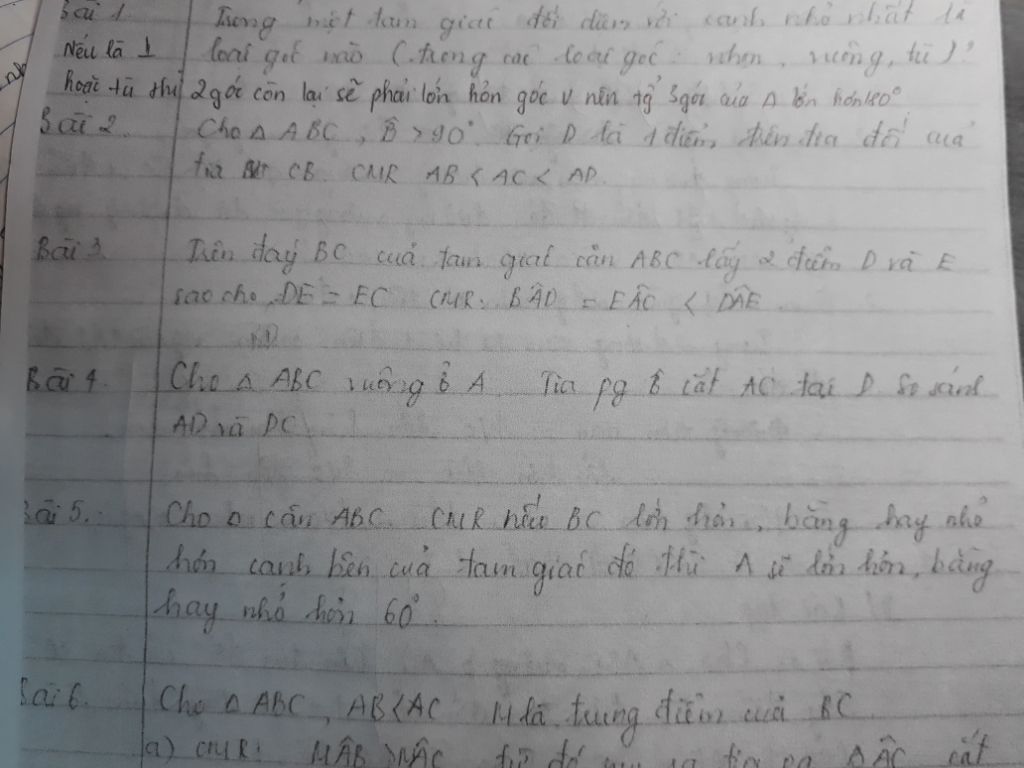 Bài 1. Trong một tam giác đối diện với cạnh nhỏ nhất là
Nếu là ⊥ loại góc nào (trong các loại góc: nhọn, vuông, tù)?
hoặc tù thì 2 góc còn lại sẽ phải lớn hơn góc v nên tg 3 góc của Δ lớn hơn 180°
Bài 2. Cho Δ ABC, B̂ > 90°. Gọi D là 1 điểm trên tia đối của
tia CB CMR AB < AC < AD.
Bài 3 Trên đáy BC của tam giác cân ABC lấy 2 điểm D và E
sao cho DE = EC CMR: BÂD = EÂC < DÂE
Bài 4. Cho Δ ABC vuông ở A. Tia pg B̂ cắt AC tại D. So sánh
AD và DC
Bài 5. Cho Δ cân ABC. CMR nếu BC lớn hơn, bằng hay nhỏ
hơn cạnh bên của tam giác đó thì A sẽ lớn hơn, bằng
hay nhỏ hơn 60°.
Bài 6. Cho Δ ABC, AB<AC M là trung điểm của BC
a) CMR: MÂB > MÂC từ đó ra tia pg ÂC cắt